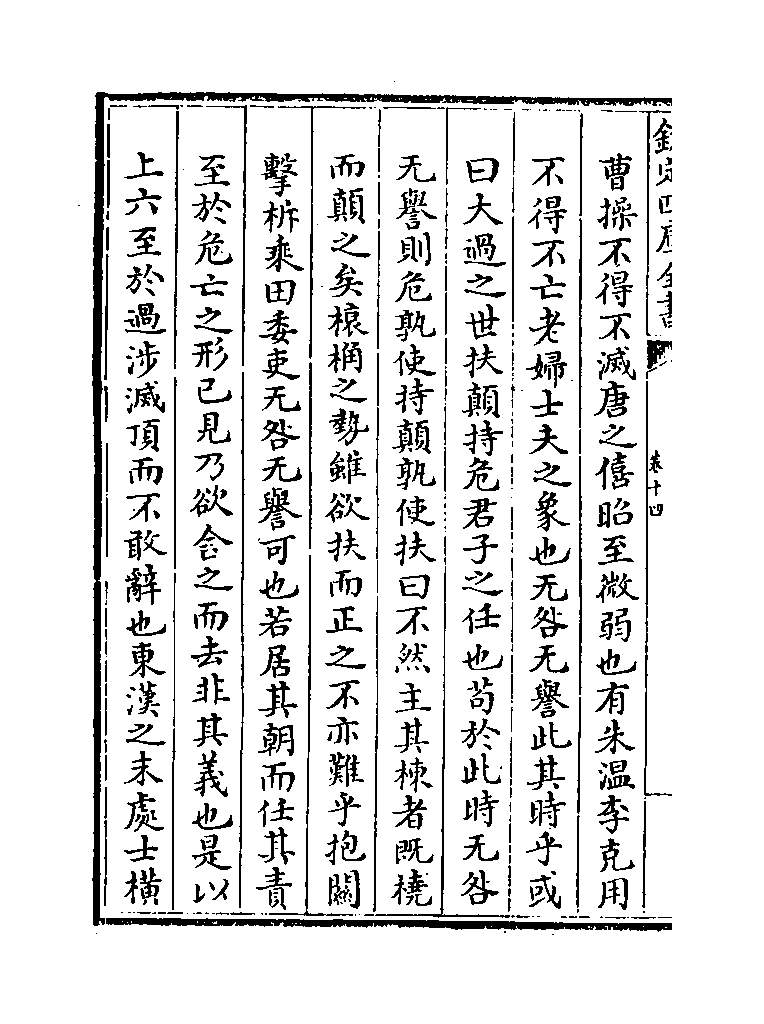 欽定四庫全書
卷十四
曹操不得不滅唐之僖昭至微弱也有朱溫李克用
不得不亡老婦士夫之象也无咎无譽此其時乎或
曰大過之世扶顛持危君子之任也茍於此時无咎
无譽則危孰使持顛孰使扶曰不然主其棟者既橈
而顛之矣榱桷之勢雖欲扶而正之不亦難乎抱關
擊柝乘田委吏无咎无譽可也若居其朝而任其責
至於危亡之形已見乃欲舍之而去非其義也是以
上六至於過涉滅頂而不敢辭也東漢之末處士橫